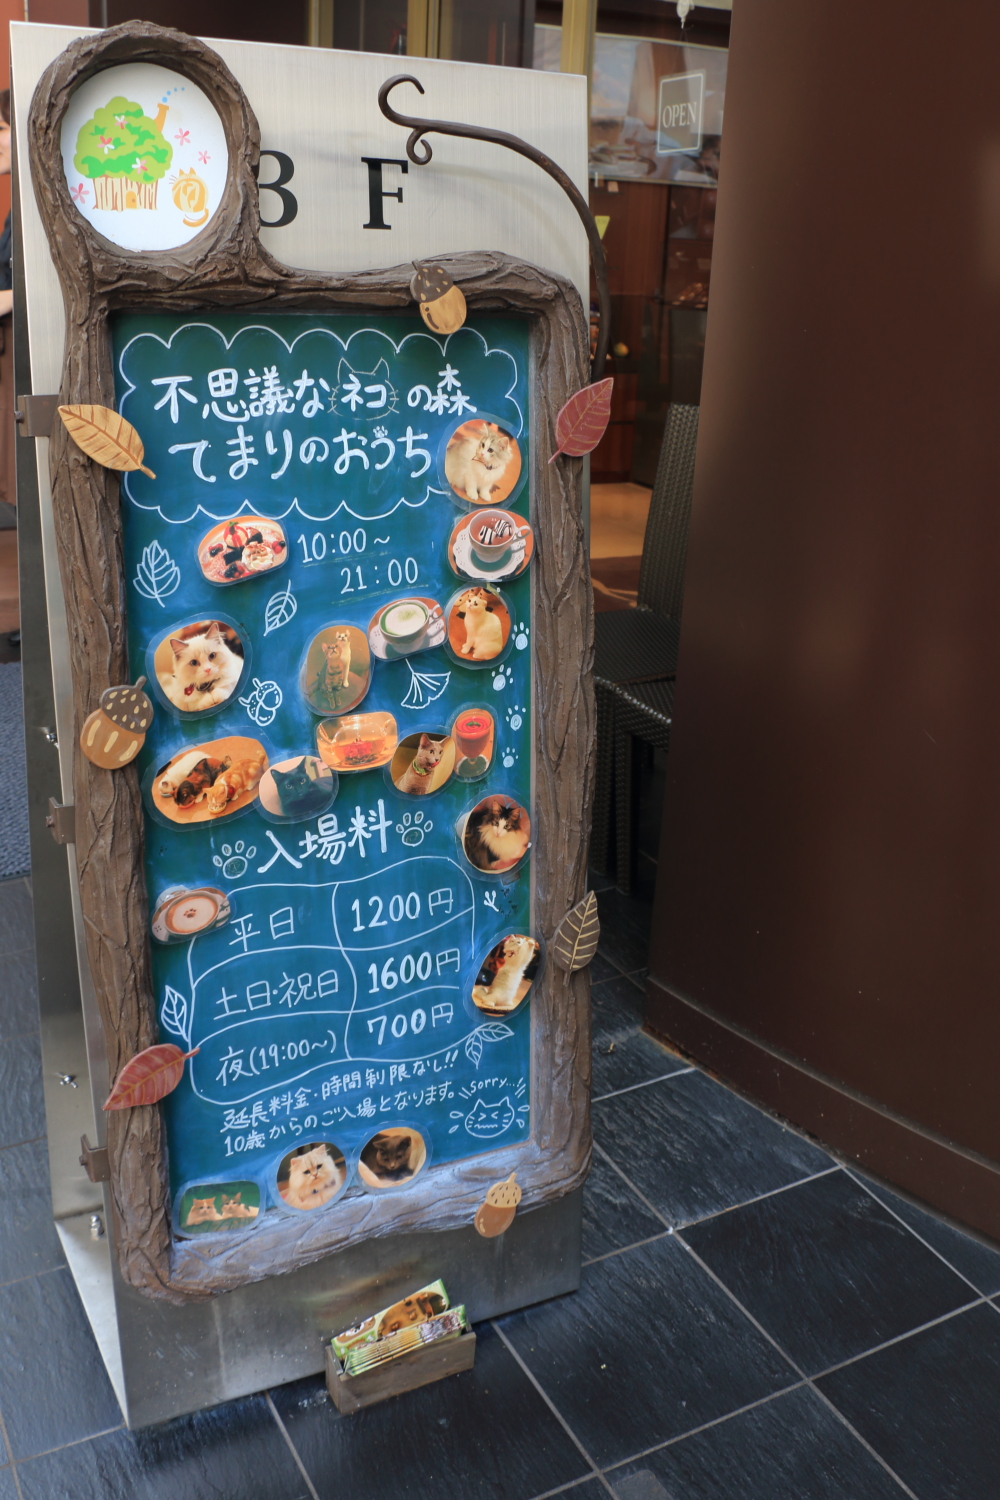 3F
OPEN
不思議なネコの森
てまりのおうち
10:00~
21:00
入場料
平日 1200円
土日・祝日 1600円
夜(19:00~) 700円
延長料金・時間制限なし!!
10歳からのご入場となります。
sorry...!!